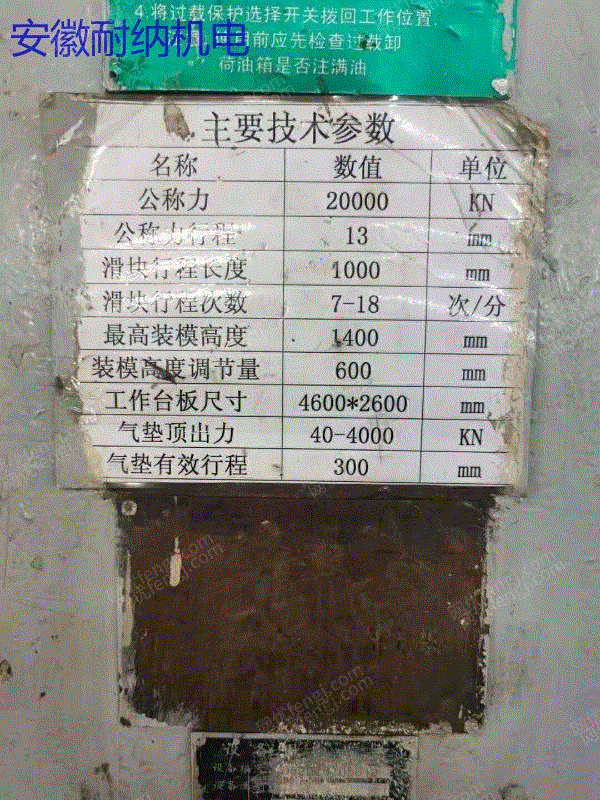 4.将过载保护选择开关拨回工作位置.
安徽耐纳机电
前应先检查过载卸
荷油箱是否注满油
主要技术参数
名称 数值 单位
公称力 20000 KN
公称力行程 13 mm
滑块行程长度 1000 mm
滑块行程次数 7-18 次/分
最高装模高度 1400 mm
装模高度调节量 600 mm
工作台板尺寸 4600*2600 mm
气垫顶出力 40-4000 KN
气垫有效行程 300 mm
设备
设备